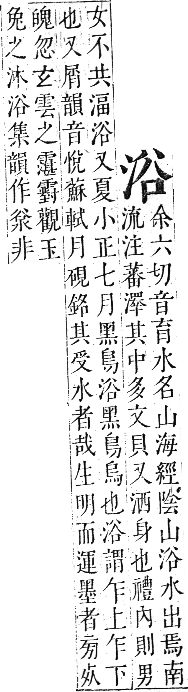 浴
余六切音育水名山海經陰山浴水出焉南
流注蕃澤其中多文貝又洒身也禮內則男
女不共湢浴又夏小正七月黑鳥浴黑鳥烏也浴謂乍上乍下
也又屑韻音悅蘇軾月硯銘其受水者哉生明而運墨者旁死
魄忽玄雲之霮䨴觀玉
兔之沐浴集韻作非